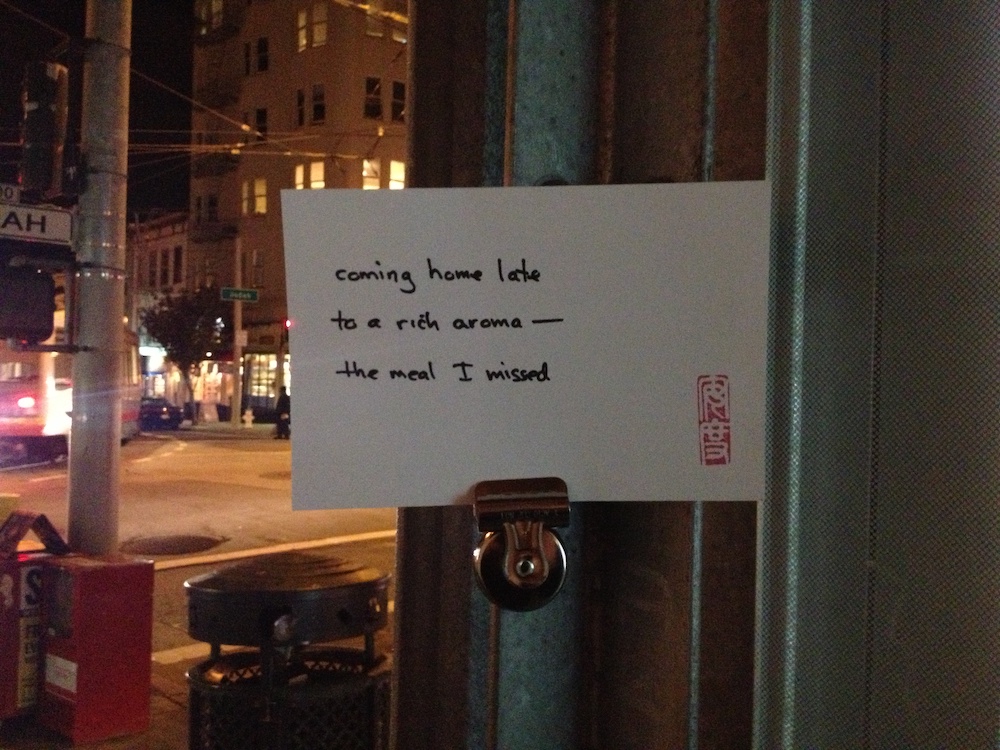 coming home late
to a rich aroma —
the meal I missed
AH
Judah